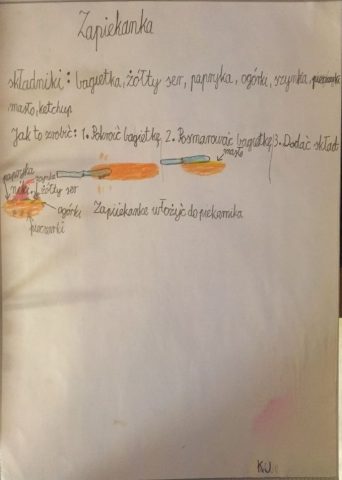 Zapiekanka
składniki: bagietka, żółty ser, papryka, ogórki, szynka, pieczarki
masło, ketchup
Jak to zrobić: 1. Pokroić bagietkę 2. Posmarować bagietkę 3. Dodać skład
masło
papryka szynka
niki. żółty ser
ogórki Zapiekankę włożyć do piekarnika
pieczarki
K.J.